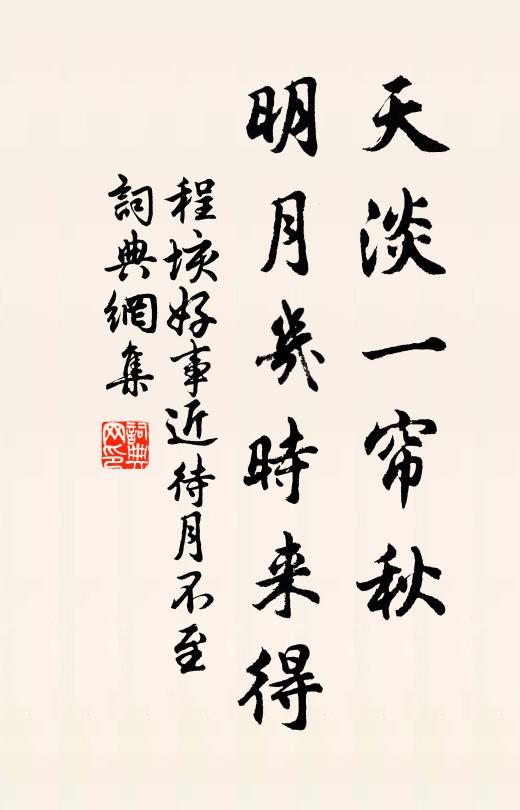 天淡一帘秋
明月幾時来得
程垓好事近待月不至
詞典網集
詞典
网印